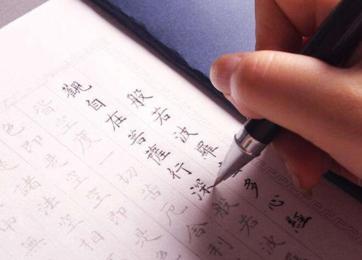 般若波羅
多心經
觀自在菩薩行深般若波
皆空度一切苦厄舍利
色即是空空即是
諸法空相
中無